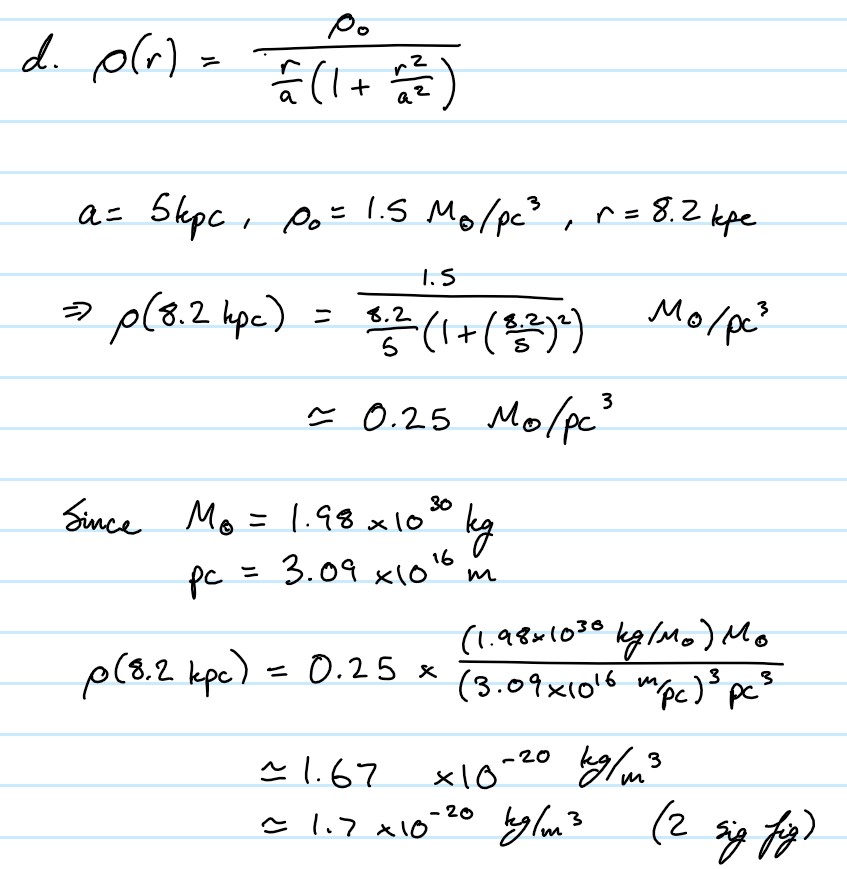 d. ρ(r) = ρ₀ / (r/a (1 + r²/a²))
a = 5kpc, ρ₀ = 1.5 M⊙/pc³, r = 8.2 kpc
⇒ ρ(8.2 kpc) = 1.5 / (8.2/5 (1+(8.2/5)²)) M⊙/pc³
≃ 0.25 M⊙/pc³
Since M⊙ = 1.98 ×10³⁰ kg
pc = 3.09 ×10¹⁶ m
ρ(8.2 kpc) = 0.25 × (1.98×10³⁰ kg/M⊙) M⊙ / (3.09×10¹⁶ m/pc)³ pc³
≃ 1.67 ×10⁻²⁰ kg/m³
≃ 1.7 ×10⁻²⁰ kg/m³ (2 sig fig)